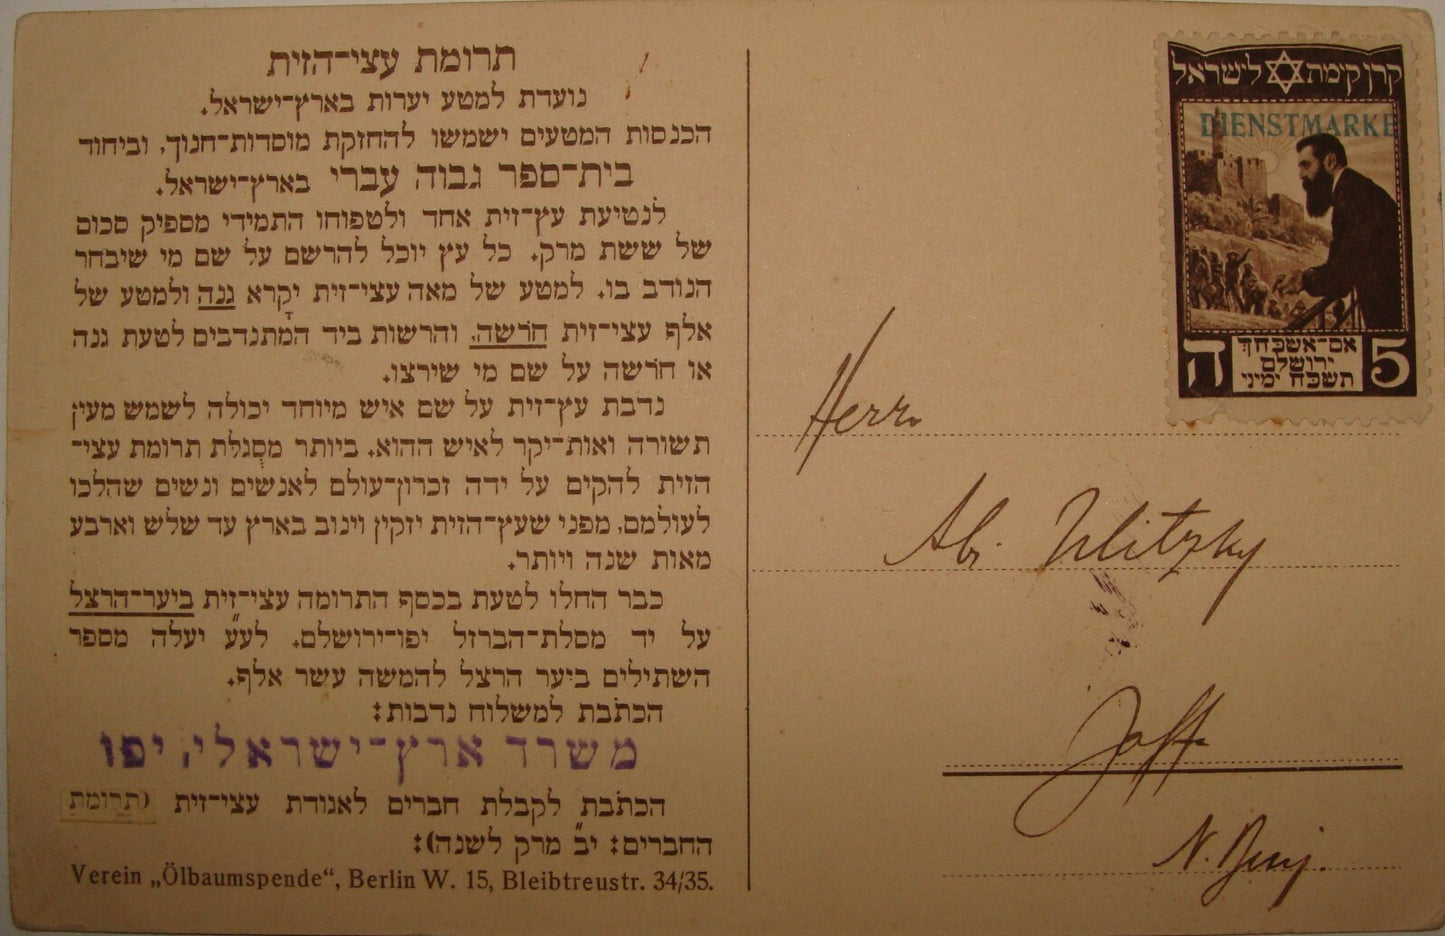 תרומת עצי־הזית
נועדת למטע יערות בארץ־ישראל.
הכנסות המטעים ישמשו להחזקת מוסדות־חנוך, וביחוד
בית־ספר גבוה עברי בארץ־ישראל.
לנטיעת עץ־זית אחד ולטפוחו התמידי מספיק סכום
של ששת מרק. כל עץ יוכל להרשם על שם מי שיבחר
הנודב בו. למטע של מאה עצי־זית יקָרא גנה ולמטע של
אלף עצי־זית חֹרשה, והרשות ביד המתנדבים לטעת גנה
או חֹרשה על שם מי שירצו.
נדבת עץ־זית על שם איש מיוחד יכולה לשמש מעין
תשורה ואות־יקר לאיש ההוא. ביותר מסֻגלת תרומת עצי־
הזית להקים על ידה זכרון־עולם לאנשים ונשים שהלכו
לעולמם, מפני שעץ־הזית יזקין וינוב בארץ עד שלש וארבע
מאות שנה ויותר.
כבר החלו לטעת בכסף התרומה עצי־זית ביער־הרצל
על יד מסלת־הברזל יפו־ירושלם. לע״ע יעלה מספר
השתילים ביער הרצל להמשה עשר אלף.
הכתבת למשלוח נדבות:
משרד ארץ־ישראלי, יפו
הכתבת לקבלת חברים לאגודת עצי־זית (תרומת
החברים: י״ב מרק לשנה):
Verein „Ölbaumspende“, Berlin W. 15, Bleibtreustr. 34/35.
קרן קימת לישראל
DIENSTMARKE
ה אם־אשכחך 5
ירושלם
תשכח ימיני
Herrn
Abr. Ulitzky
Jaffa
N. Benj.